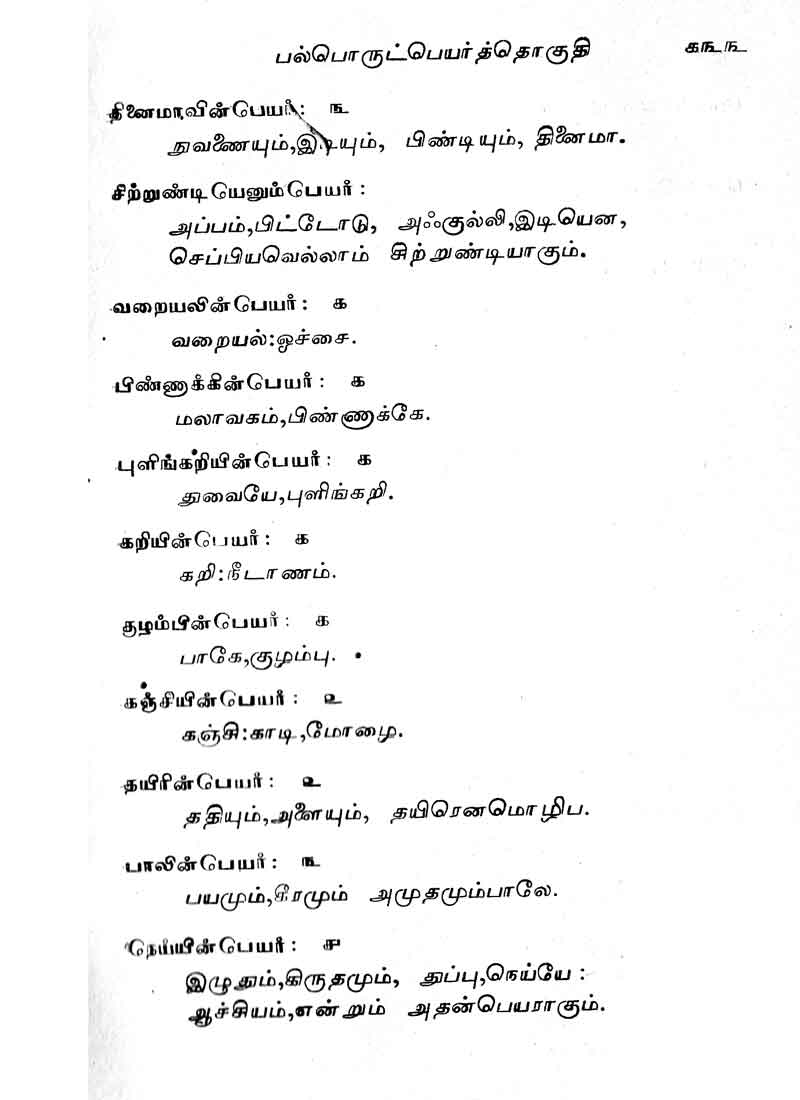 பல்பொருட்பெயர்த்தொகுதி ௧௩௩
தினைமாவின்பெயர்: ௩
நுவணையும்,இடியும், பிண்டியும், தினைமா.
சிற்றுண்டியெனும்பெயர்:
அப்பம்,பிட்டோடு, அஃகுல்லி,இடியென,
செப்பியவெல்லாம் சிற்றுண்டியாகும்.
வறையலின்பெயர்: ௧
வறையல்:ஓச்சை.
பிண்ணாக்கின்பெயர்: ௧
மலாவகம்,பிண்ணாக்கே.
புளிங்கறியின்பெயர்: ௧
துவையே,புளிங்கறி.
கறியின்பெயர்: ௧
கறி:நீடாணம்.
குழம்பின்பெயர்: ௧
பாகே,குழம்பு.
கஞ்சியின்பெயர்: ௨
கஞ்சி:காடி,மோழை.
தயிரின்பெயர்: ௨
ததியும்,அளையும், தயிரெனமொழிப.
பாலின்பெயர்: ௩
பயமும்,கீரமும் அமுதமும்பாலே.
நெய்யின்பெயர்: ௪
இழுதும்,கிருதமும், துப்பு,நெய்யே:
ஆச்சியம்,என்றும் அதன்பெயராகும்.